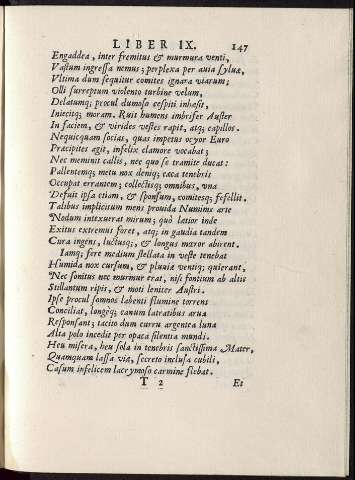 LIBER IX. 147
Engaddea, inter fremitus & murmura venti,
Vastum ingressa nemus; perplexa per auia syluæ,
Vltima dum sequitur comites ignara viarum;
Olli surreptum violento turbine velum,
Delatumq; procul dumoso cespiti inhæsit,
Iniecitq; moram. Ruit humens imbrifer Auster
In faciem, & virides vestes rapit, atq; capillos.
Nequicquam socias, quas impetus ocyor Euro
Præcipites agit, infelix clamore vocabat;
Nec meminit callis, nec quo se tramite ducat:
Pallentemq; metu nox deniq; cæca tenebris
Occupat errantem; collectisq; omnibus, vna
Defuit ipsa etiam, & sponsum, comitesq; fefellit.
Talibus implicitum mens prouida Numinis arte
Nodum intexuerat mirum; quò lætior inde
Exitus extremus foret, atq; in gaudia tandem
Cura ingens, luctusq;, & longus mæror abirent.
Iamq; fere medium stellata in veste tenebat
Humida nox cursum, & pluuiæ ventiq; quierant,
Nec sonitus nec murmur erat, nisi fontium ab altis
Stillantum ripis, & moti leniter Austri.
Ipse procul somnos labenti flumine torrens
Conciliat, longeq; canum latratibus arua
Responsant; tacito dum curru argentea luna
Alta polo incedit per opaca silentia mundi.
Heu misera, heu sola in tenebris sanctissima Mater,
Quamquam lassa viæ, secreto inclusa cubili,
Casum infelicem lacrymoso carmine flebat.
T 2 Et